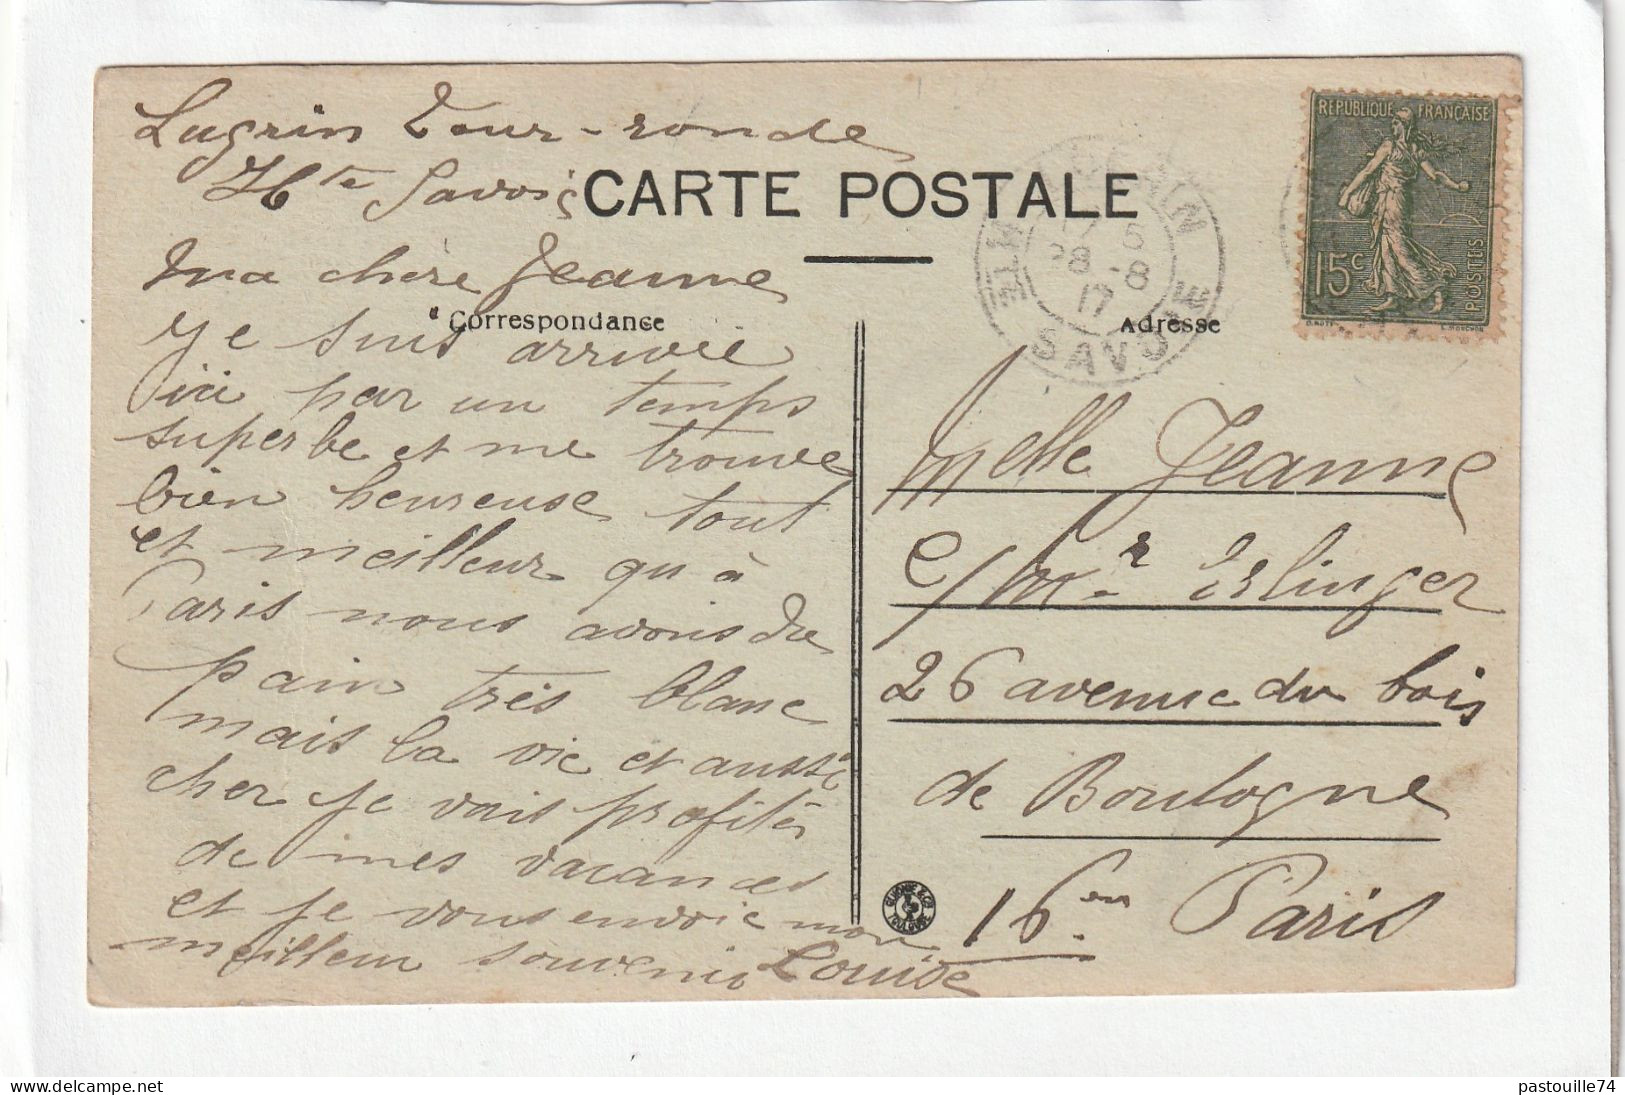 Lugrin Tour-ronde
Hte Savoie
CARTE POSTALE
Ma chère Jeanne
Correspondance
je suis arrivée
ici par un temps
superbe et me trouve
bien heureuse tout
et meilleur qu'à
Paris nous avons du
pain très blanc
mais la vie et aussi
cher je vais profiter
de mes vacances
et je vous envoie mon
meilleur souvenir Louise
LUGRIN
17 5
28 -8
17
HTE SAVOIE
REPUBLIQUE FRANÇAISE
15c
POSTES
Adresse
Melle Jeanne
c/Mr Erlinger
26 avenue du bois
de Boulogne
16em Paris
TOULOUSE
pastouille74